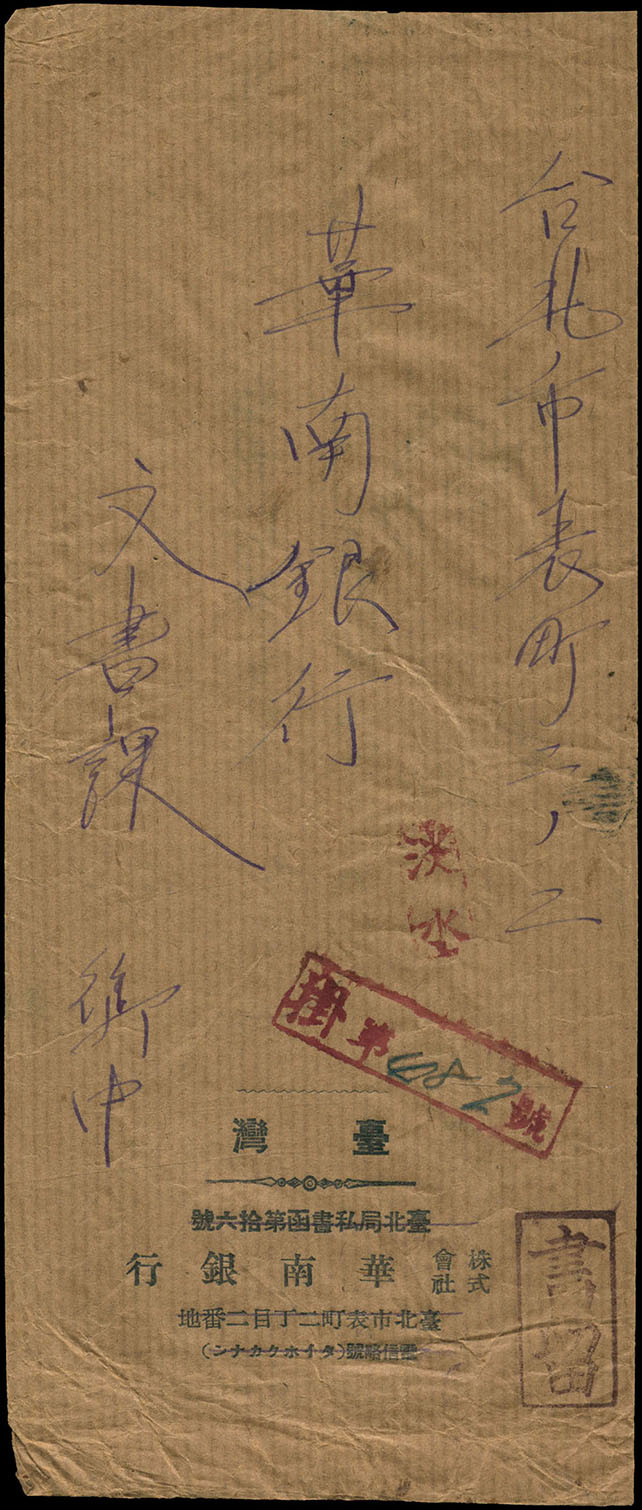 台北市表町二ノ二
華南銀行
文書課 御中
淡水
掛第 2號
臺灣
臺北局私書函第拾六號
株式會社 華南銀行
臺北市表町二丁目二番地
電信略號(タイホクカナンシ)
書留